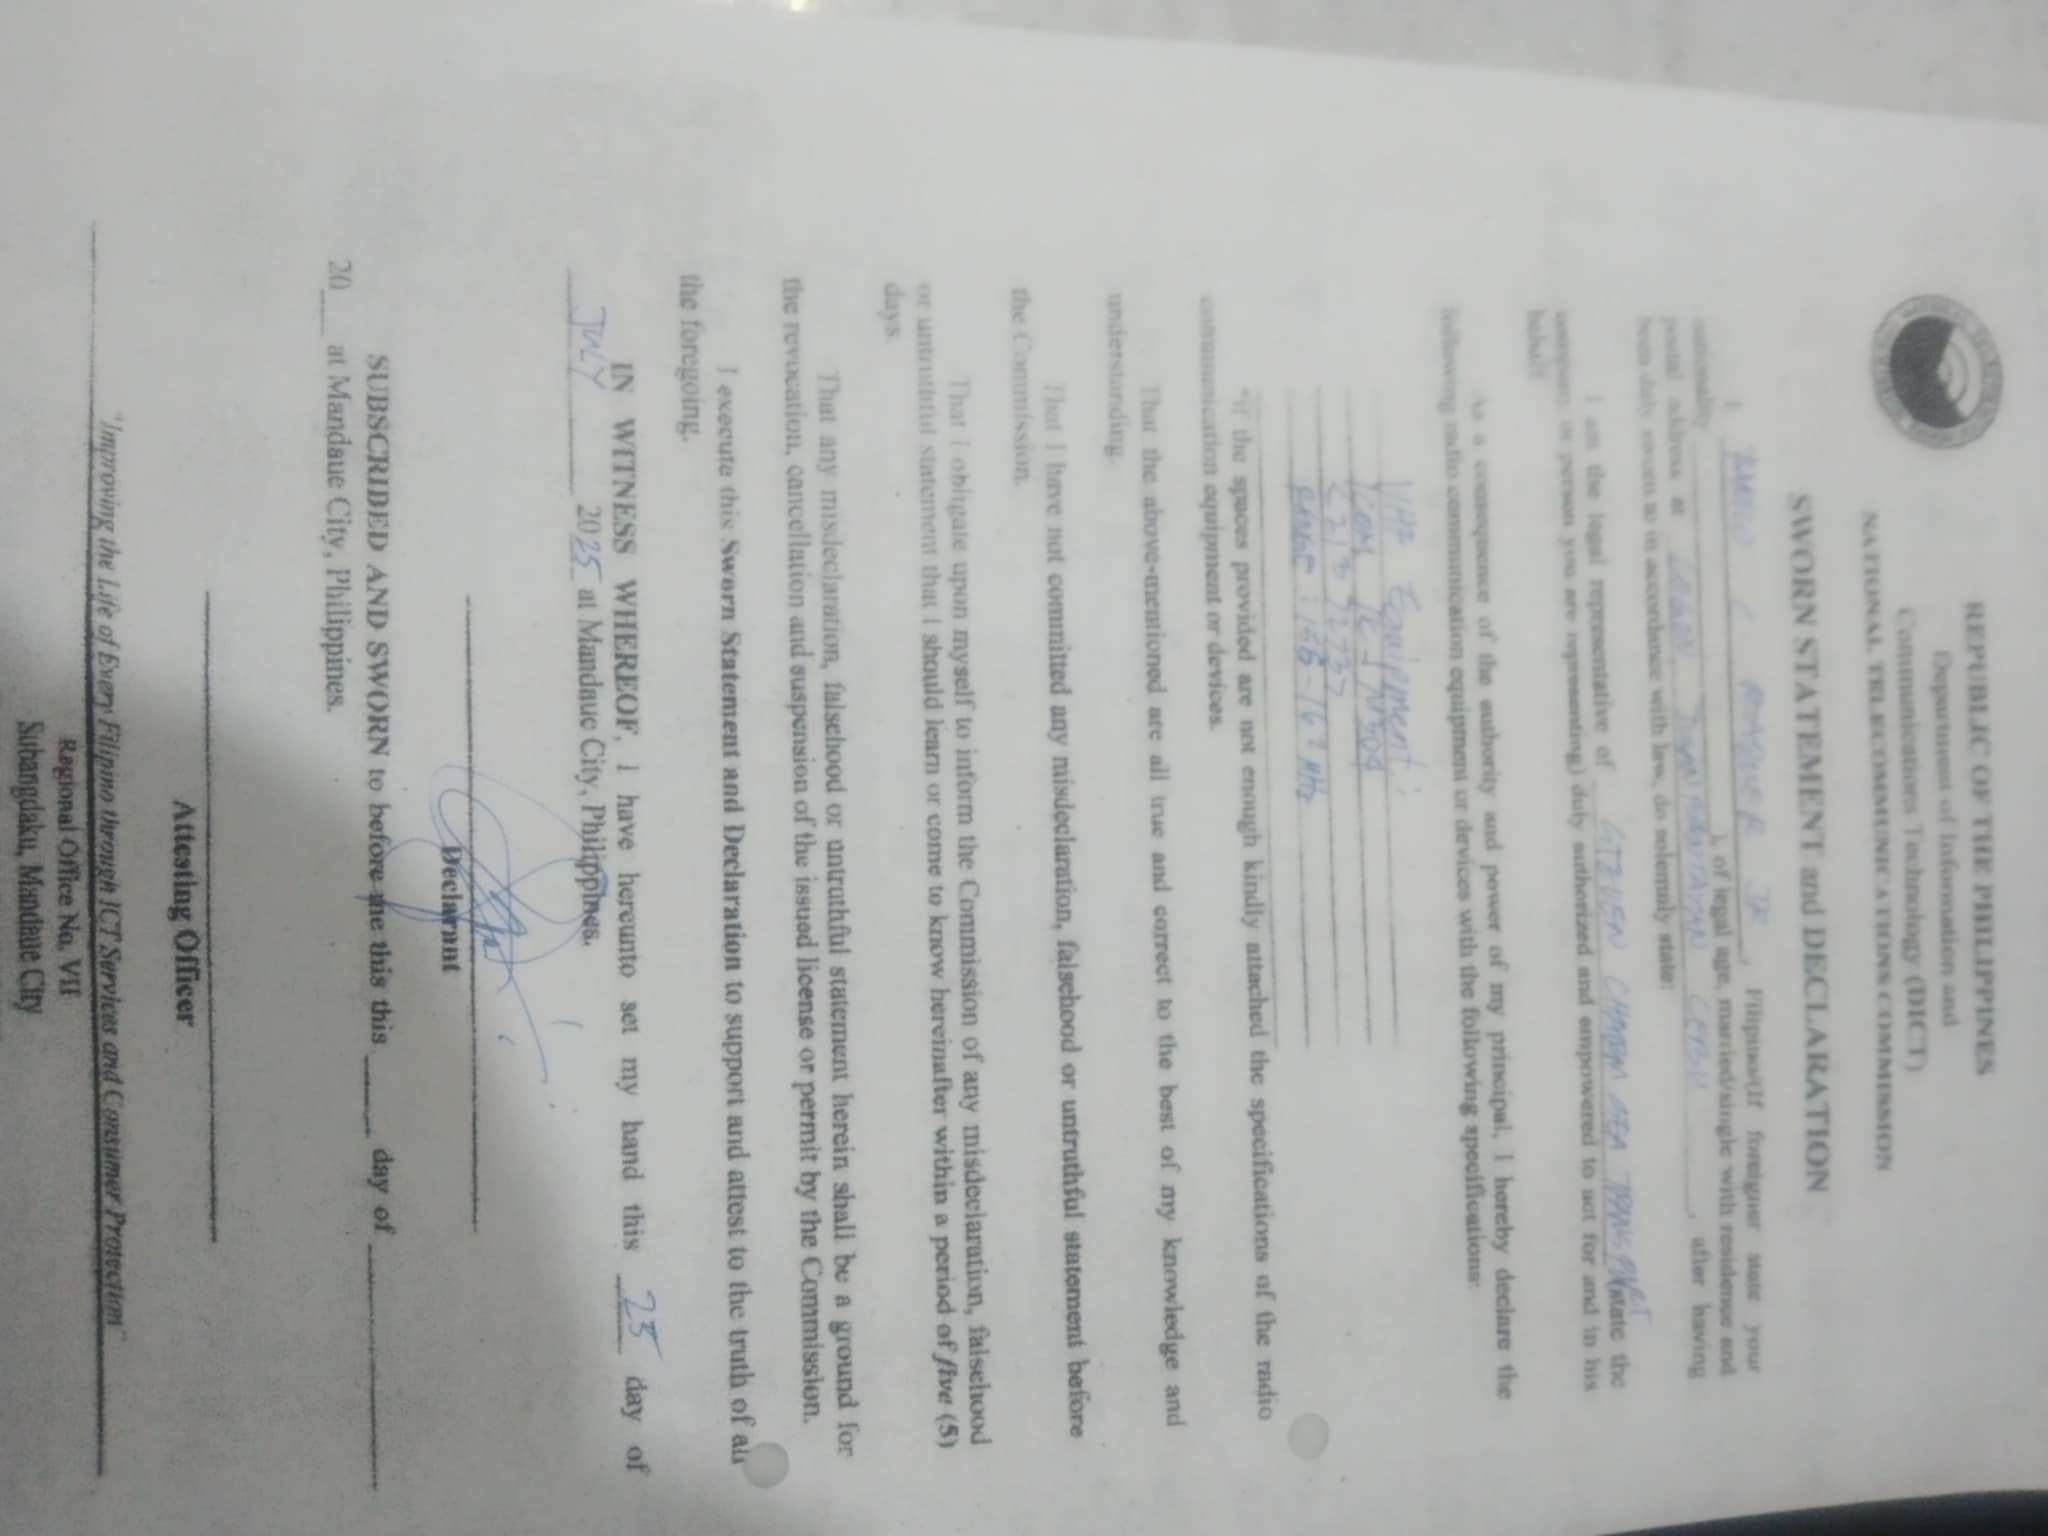 REPUBLIC OF THE PHILIPPINES
Department of Information and
Communications Technology (DICT)
NATIONAL TELECOMMUNICATIONS COMMISSION
SWORN STATEMENT and DECLARATION
I, C. JR., Filipino(If foreigner state your
nationality), of legal age, married/single with residence and
postal address at CEBU, after having
been duly sworn to in accordance with law, do solemnly state:
I am the legal representative of SEA TRANSPORT (state the
company or person you are representing) duly authorized and empowered to act for and in his
behalf.
As a consequence of the authority and power of my principal, I hereby declare the
following radio communication equipment or devices with the following specifications:
VHF Equipment:
RANGE: 156-16 MHz
*If the spaces provided are not enough kindly attached the specifications of the radio
communication equipment or devices.
That the above-mentioned are all true and correct to the best of my knowledge and
understanding.
That I have not committed any misdeclaration, falsehood or untruthful statement before
the Commission.
That I obligate upon myself to inform the Commission of any misdeclaration, falsehood
or untruthful statement that I should learn or come to know hereinafter within a period of five (5)
days.
That any misdeclaration, falsehood or untruthful statement herein shall be a ground for
the revocation, cancellation and suspension of the issued license or permit by the Commission.
I execute this Sworn Statement and Declaration to support and attest to the truth of all
the foregoing.
IN WITNESS WHEREOF, I have hereunto set my hand this 25 day of
JULY 2025 at Mandaue City, Philippines.
Declarant
SUBSCRIDED AND SWORN to before me this this ____ day of ____
20___ at Mandaue City, Philippines.
Attesting Officer
"Improving the Life of Every Filipino through ICT Services and Consumer Protection"
Regional Office No. VII
Subangdaku, Mandaue City